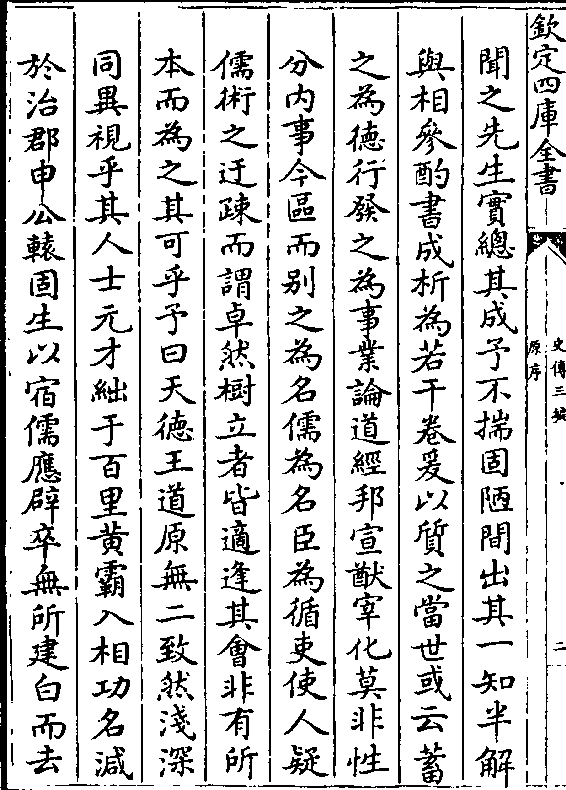 欽定四庫全書
史傳三編
原序
二
聞之先生實總其成予不揣固陋間出其一知半解
與相參酌書成析為若干卷爰以質之當世或云蓄
之為德行發之為事業論道經邦宣猷宰化莫非性
分内事今區而别之為名儒為名臣為循吏使人疑
儒術之迂疎而謂卓然樹立者皆適逢其會非有所
本而為之其可乎予曰天德王道原無二致然淺深
同異視乎其人士元才絀于百里黄霸入相功名減
於治郡申公轅固生以宿儒應辟卒無所建白而去